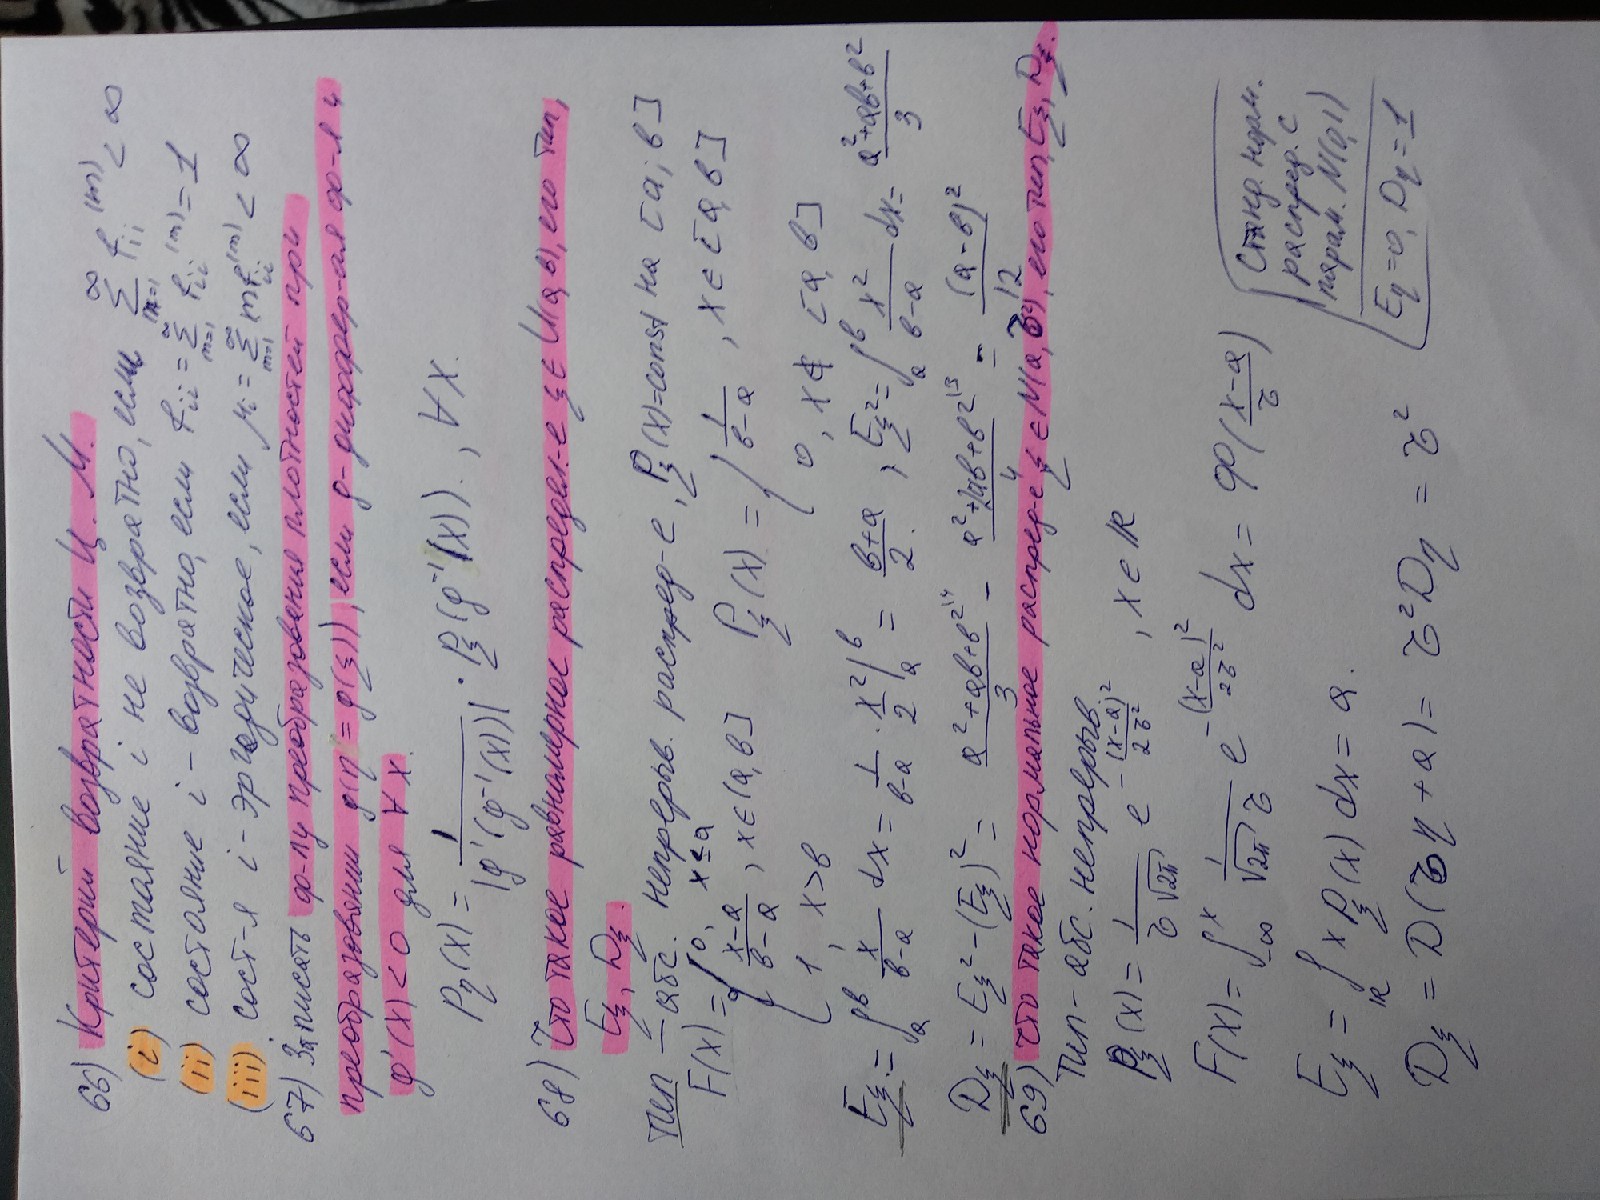 66) Критерий возвратности Ц. М.
(i) состояние i не возвратно, если ∑_{m=1}^∞ f_ii^(m) < ∞
(ii) состояние i – возвратно, если f_ii = ∑_{m=1}^∞ f_ii^(m) = 1
(iii) сост-я i – эргодическое, если μ_i = ∑_{m=1}^∞ m f_ii^(m) < ∞
67) Записать ф-лу преобразования плотностей при
преобразовании g(η = g(ξ)), если g – диффер-ая ф-я и
g'(x) < 0 для ∀ x.
P_η(x) = 1/|g'(g⁻¹(x))| · P_ξ(g⁻¹(x)) , ∀ x.
68) Что такое равномерное распредел-е ξ ∈ U(a, b), его тип,
Eξ, Dξ.
Тип – абс. непрерыв. распред-е, P_ξ(x) = const на [a; b]
F(x) = { 0, x ≤ a
(x-a)/(b-a) , x ∈ (a, b]
1 , x > b
P_ξ(x) = { 1/(b-a) , x ∈ [a, b]
0 , x ∉ [a, b]
Eξ = ∫_a^b x/(b-a) dx = 1/(b-a) · x²/2 |_a^b = (b+a)/2 , Eξ² = ∫_a^b x²/(b-a) dx = (a²+ab+b²)/3
Dξ = Eξ² - (Eξ)² = (a²+ab+b²)/3 - (a²+2ab+b²)/4 = (a-b)²/12
69) Что такое нормальное распред-е ξ ∈ N(a, σ²), его тип, Eξ, Dξ.
Тип – абс. непрерыв.
P_ξ(x) = 1/(σ√2π) e^{-(x-a)²/2σ²} , x ∈ ℝ
F(x) = ∫_∞^x 1/(√2π σ) e^{-(x-a)²/2σ²} dx = φ0((x-a)/σ)
Станд. норм.
распред. с
парам. N(0,1)
Eη = 0, Dη = 1
Eξ = ∫_ℝ x P_ξ(x) dx = a.
Dξ = D(ση + a) = σ²Dη = σ²